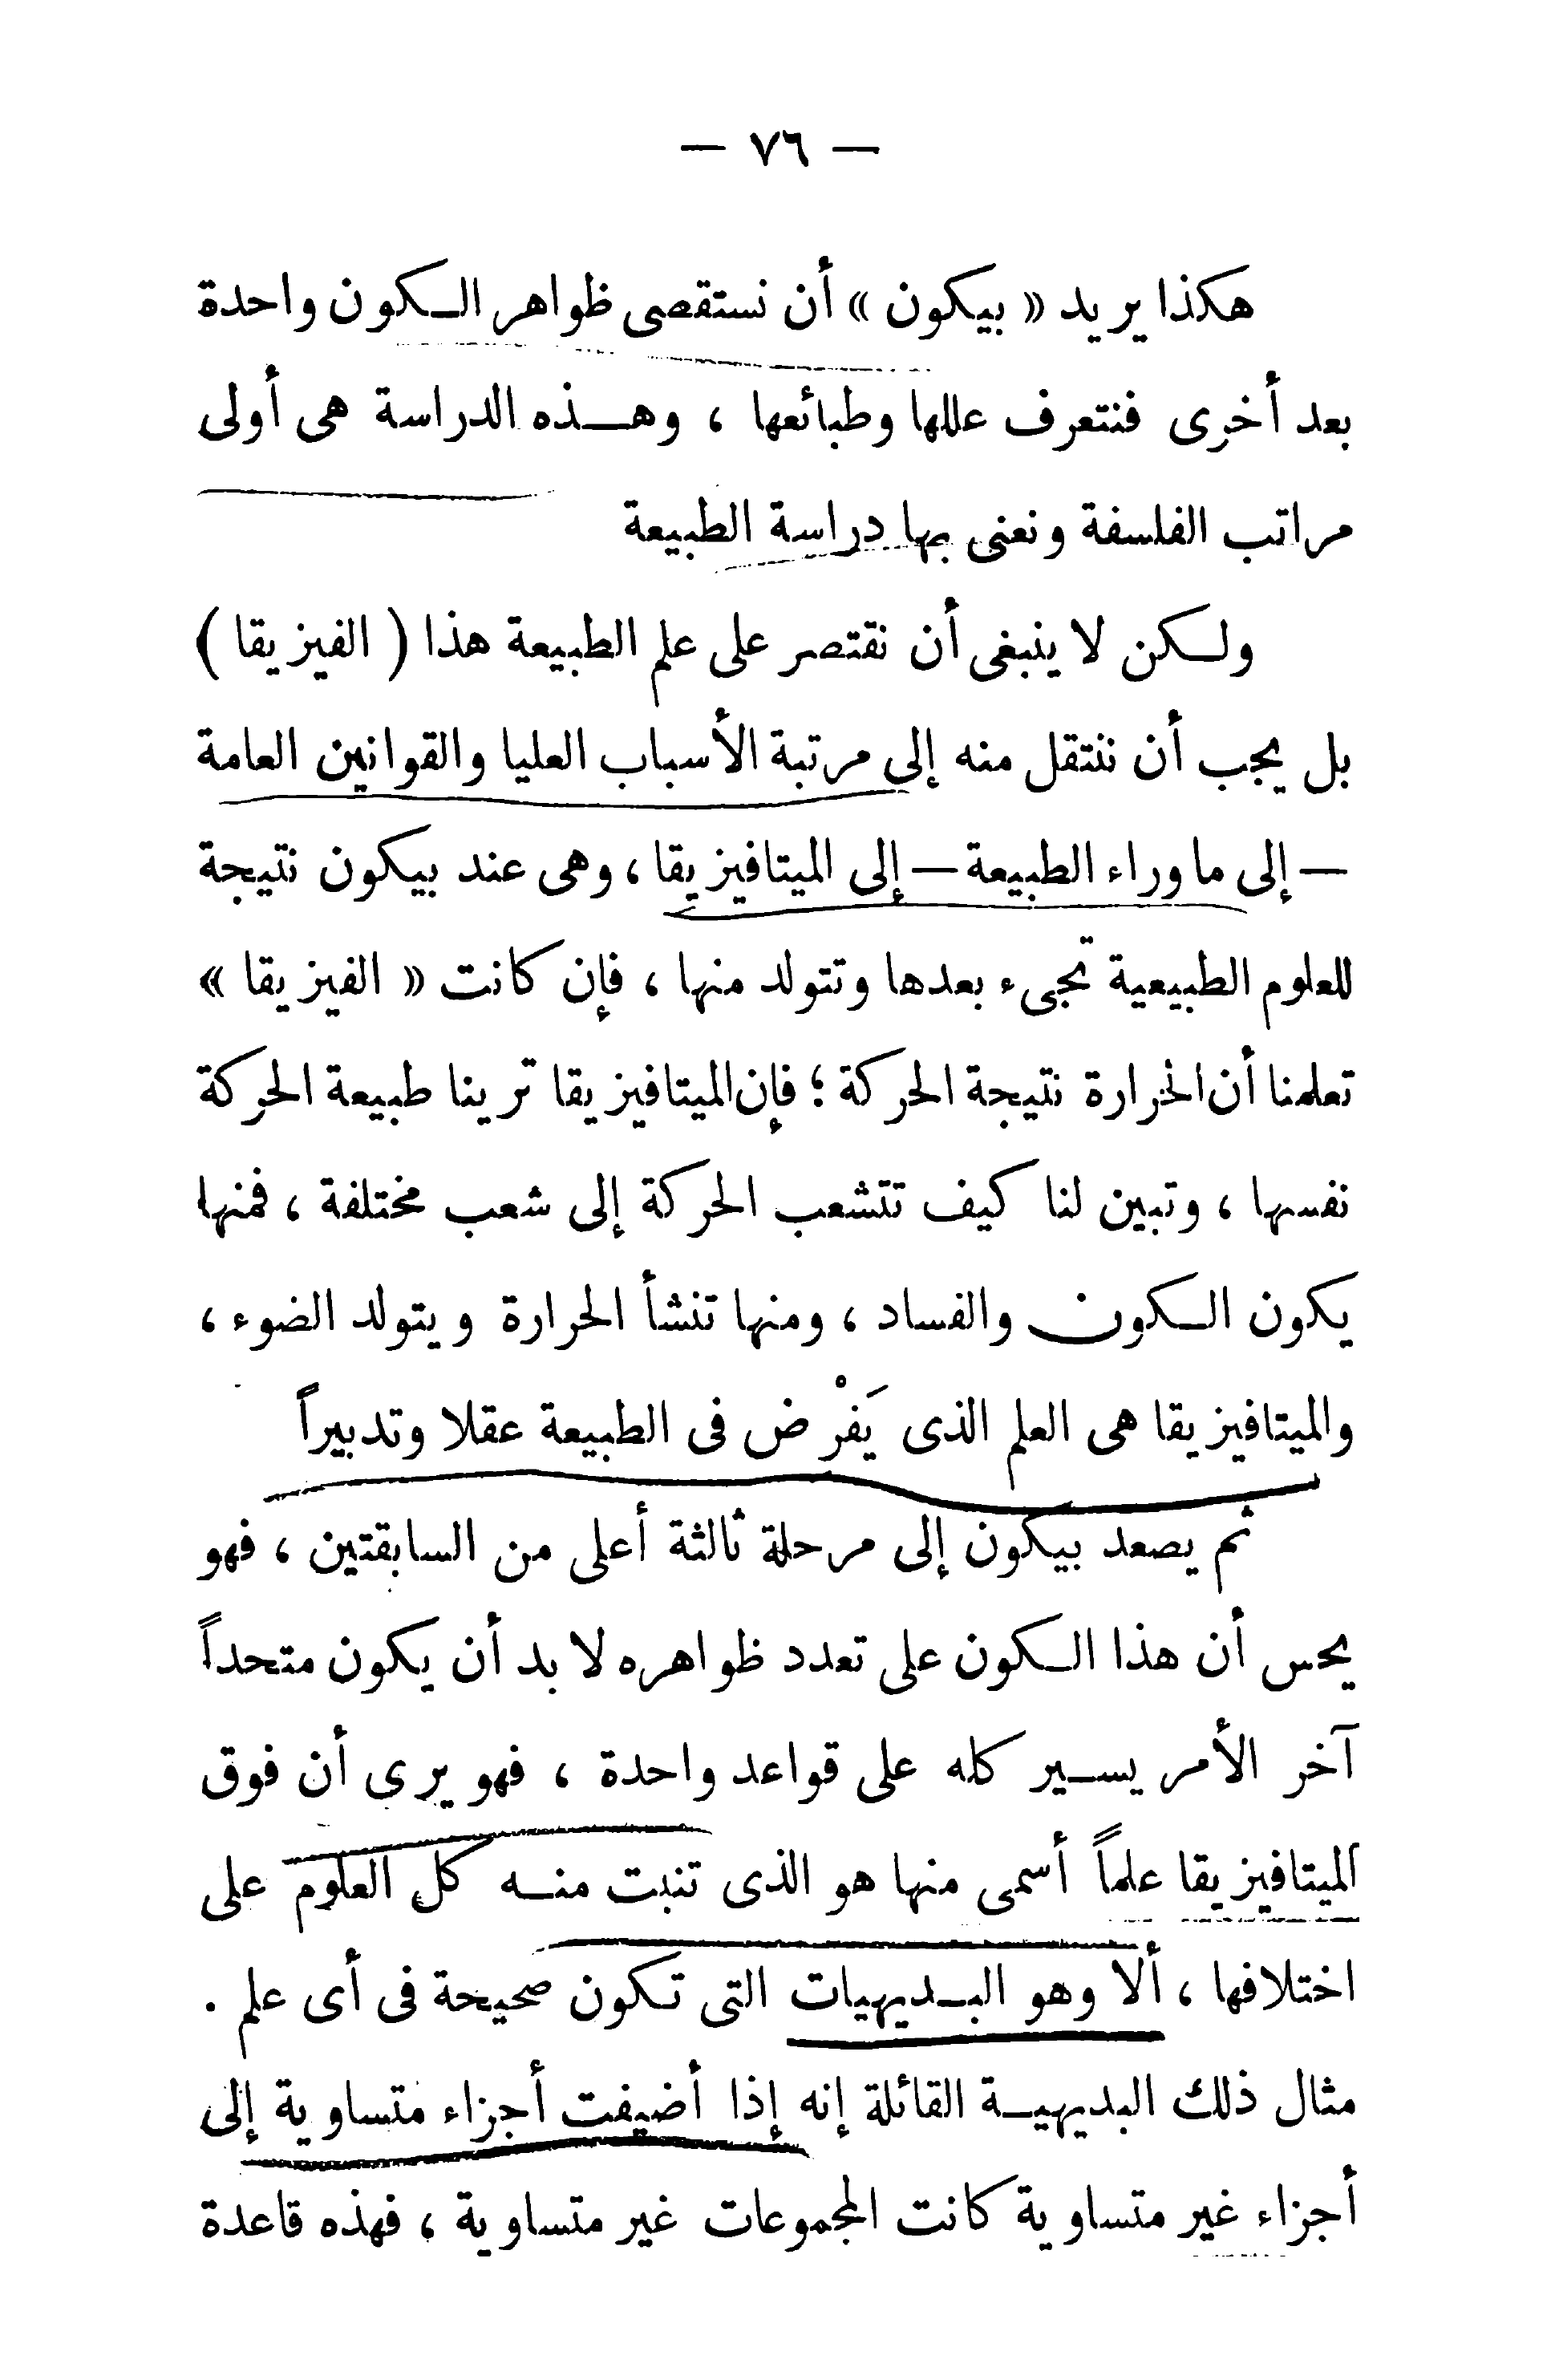 — ٧٦ —
هكذا يريد « بيكون » أن نستقصى ظواهر الـكون واحدة
بعد أخرى فنتعرف عللها وطبائعها ، وهـذه الدراسة هى أولى
مراتب الفلسفة ونعنى بها دراسة الطبيعة
ولـكن لا ينبغى أن نقتصر على علم الطبيعة هذا ( الفيزيقا )
بل يجب أن ننتقل منه إلى مرتبة الأسباب العليا والقوانين العامة
— إلى ما وراء الطبيعة — إلى الميتافيزيقا ، وهى عند بيكون نتيجة
للعلوم الطبيعية تجىء بعدها وتتولد منها ، فإن كانت « الفيزيقا »
تعلمنا أن الحرارة نتيجة الحركة ؛ فإن الميتافيزيقا ترينا طبيعة الحركة
نفسها ، وتبين لنا كيف تتشعب الحركة إلى شعب مختلفة ، فمنها
يكون الـكون والفساد ، ومنها تنشأ الحرارة ويتولد الضوء ،
والميتافيزيقا هى العلم الذى يَفْرض فى الطبيعة عقلا وتدبيراً
ثم يصعد بيكون إلى مرحلة ثالثة أعلى من السابقتين ، فهو
يحس أن هذا الـكون على تعدد ظواهره لا بد أن يكون متحداً
آخر الأمر يسـير كله على قواعد واحدة ، فهو يرى أن فوق
الميتافيزيقا علماً أسمى منها هو الذى تنبت منـه كل العلوم على
اختلافها ، ألا وهو البـديهيات التى تـكون صحيحة فى أى علم .
مثال ذلك البديهيـة القائلة إنه إذا أضيفت أجزاء متساوية إلى
أجزاء غير متساوية كانت المجموعات غير متساوية ، فهذه قاعدة